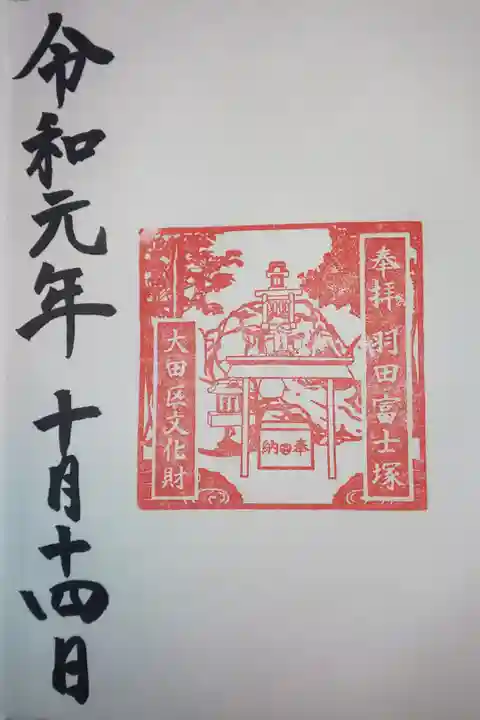 奉拝 羽田富士塚
納奉
大田区文化財
令和元年 十月十四日